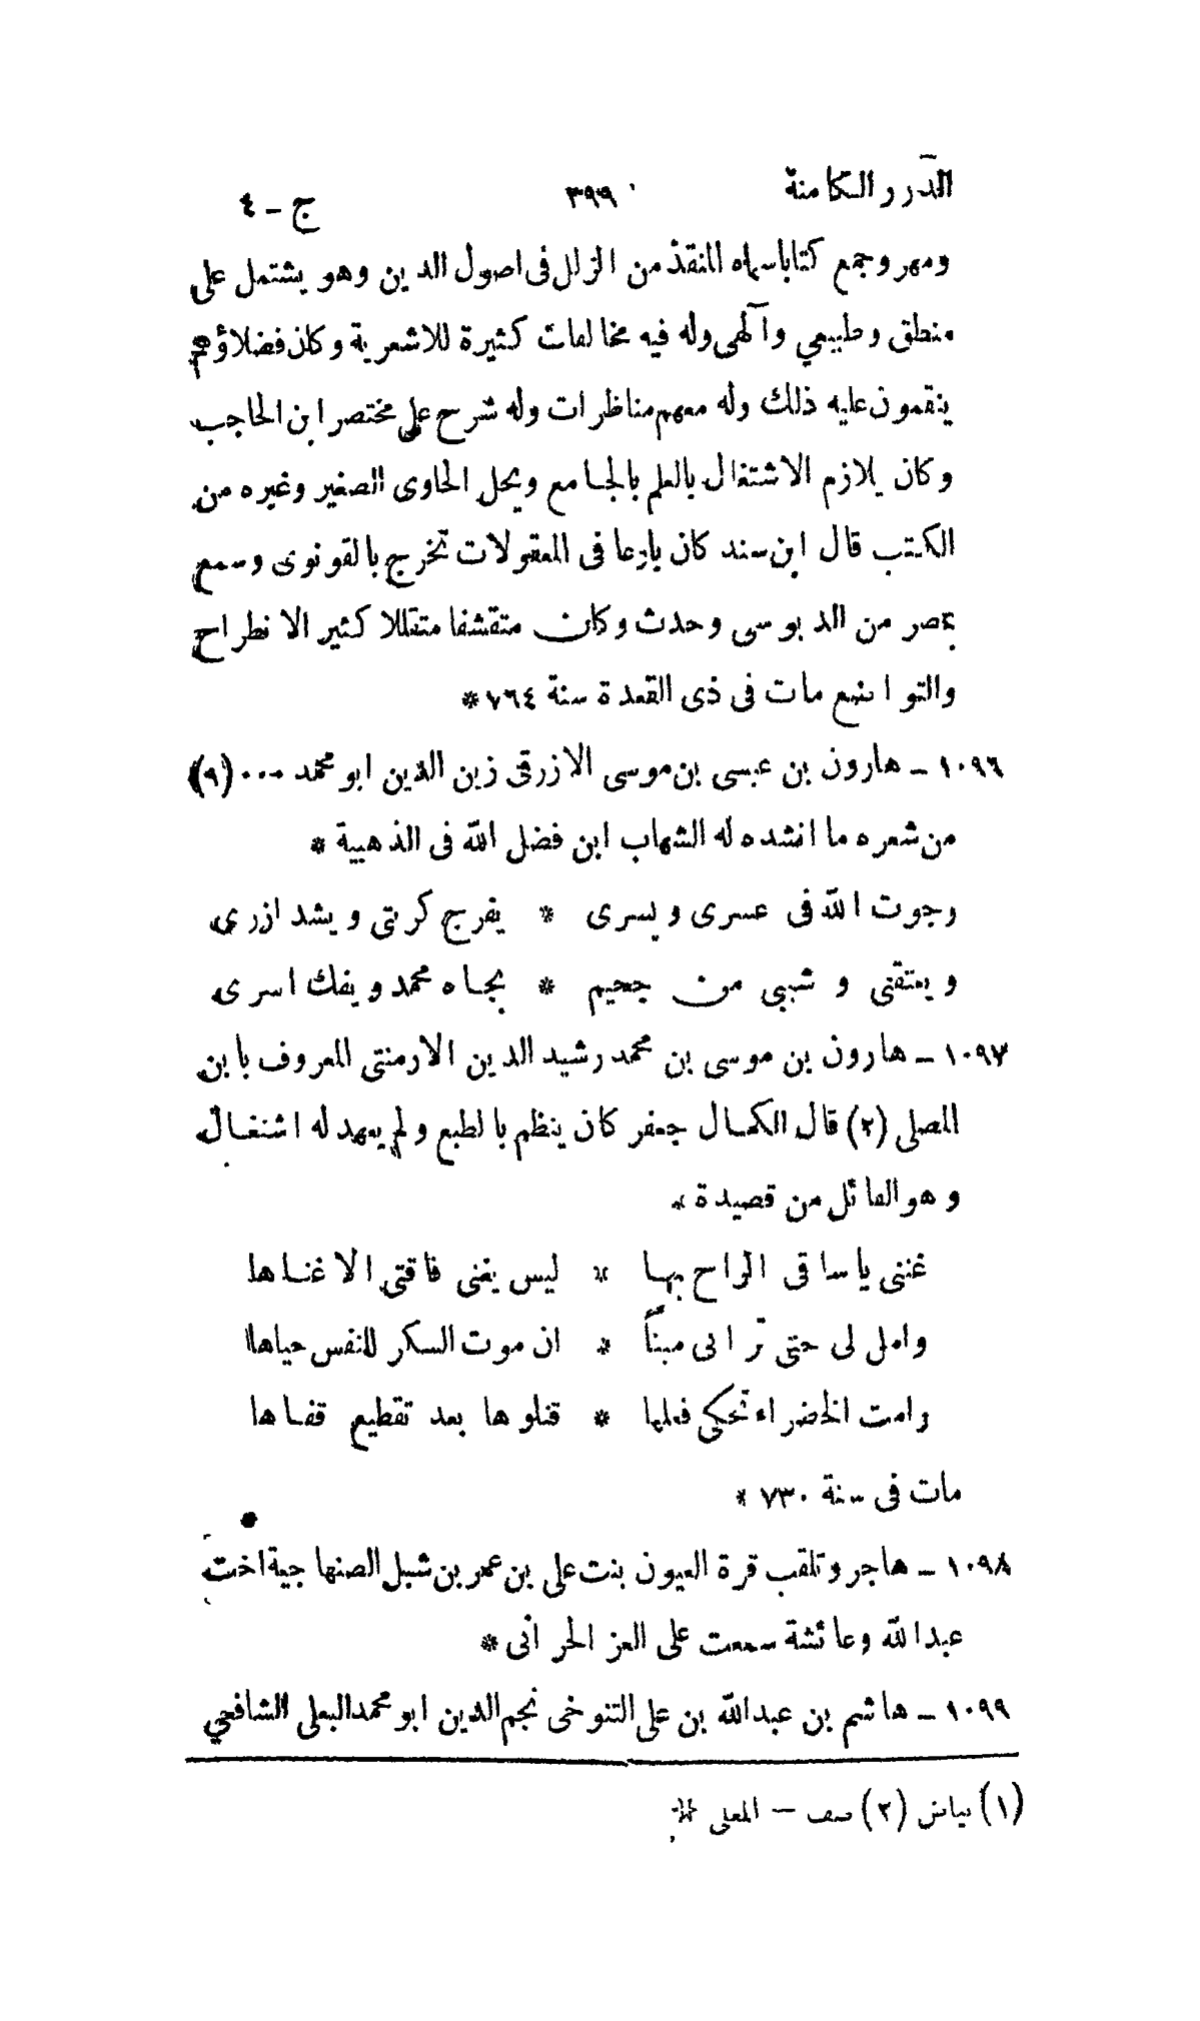 الدرر الكامنة ٣٩٩ ج - ٤
ومهر وجمع كتابا سماه المنقذ من الزلل فى اصول الدين وهو يشتمل على
منطق وطبيعي وآلهى وله فيه مخالفات كثيرة للاشعرية وكان فضلاؤهم
ينقمون عليه ذلك وله معهم مناظرات وله شرح على مختصر ابن الحاجب
وكان يلازم الاشتغال بالعلم بالجامع ويحل الحاوى الصغير وغيره من
الكتب قال ابن سند كان بارعا فى المعقولات تخرج بالقونوى وسمع
بمصر من الدبوسى وحدث وكان متقشفا متقللا كثير الانطراح
والتواضع مات فى ذى القعدة سنة ٧٦٤ *
١٠٩٦ - هارون بن عيسى بن موسى الازرقى زين الدين ابو محمد ... (١)
من شعره ما انشده له الشهاب ابن فضل الله فى الذهبية *
رجوت الله فى عسرى ويسرى * يفرج كربتى ويشد ازرى
ويعتقنى وشيبى من جحيم * بجاه محمد ويفك اسرى
١٠٩٧ - هارون بن موسى بن محمد رشيد الدين الارمنتى المعروف بابن
المصلى (٢) قال الكمال جعفر كان ينظم بالطبع ولم يعهد له اشتغال
وهو القائل من قصيدة *
غننى ياساقى الراح بها * ليس يغنى فاقتى الا غناها
وامل لى حتى ترانى ميتاً * ان موت السكر للنفس حياها
رامت الخضراء تحكى فعلها * قتلوها بعد تقطيع قفاها
مات فى سنة ٧٣٠ *
١٠٩٨ - هاجر وتلقب قرة العيون بنت على بن عمر بن شبل الصنهاجية اخت
عبد الله وعائشة سمعت على العز الحرانى *
١٠٩٩ - هاشم بن عبد الله بن على التنوخى نجم الدين ابو محمد البعلى الشافعي
(١) بياض (٢) صف - المعلى *